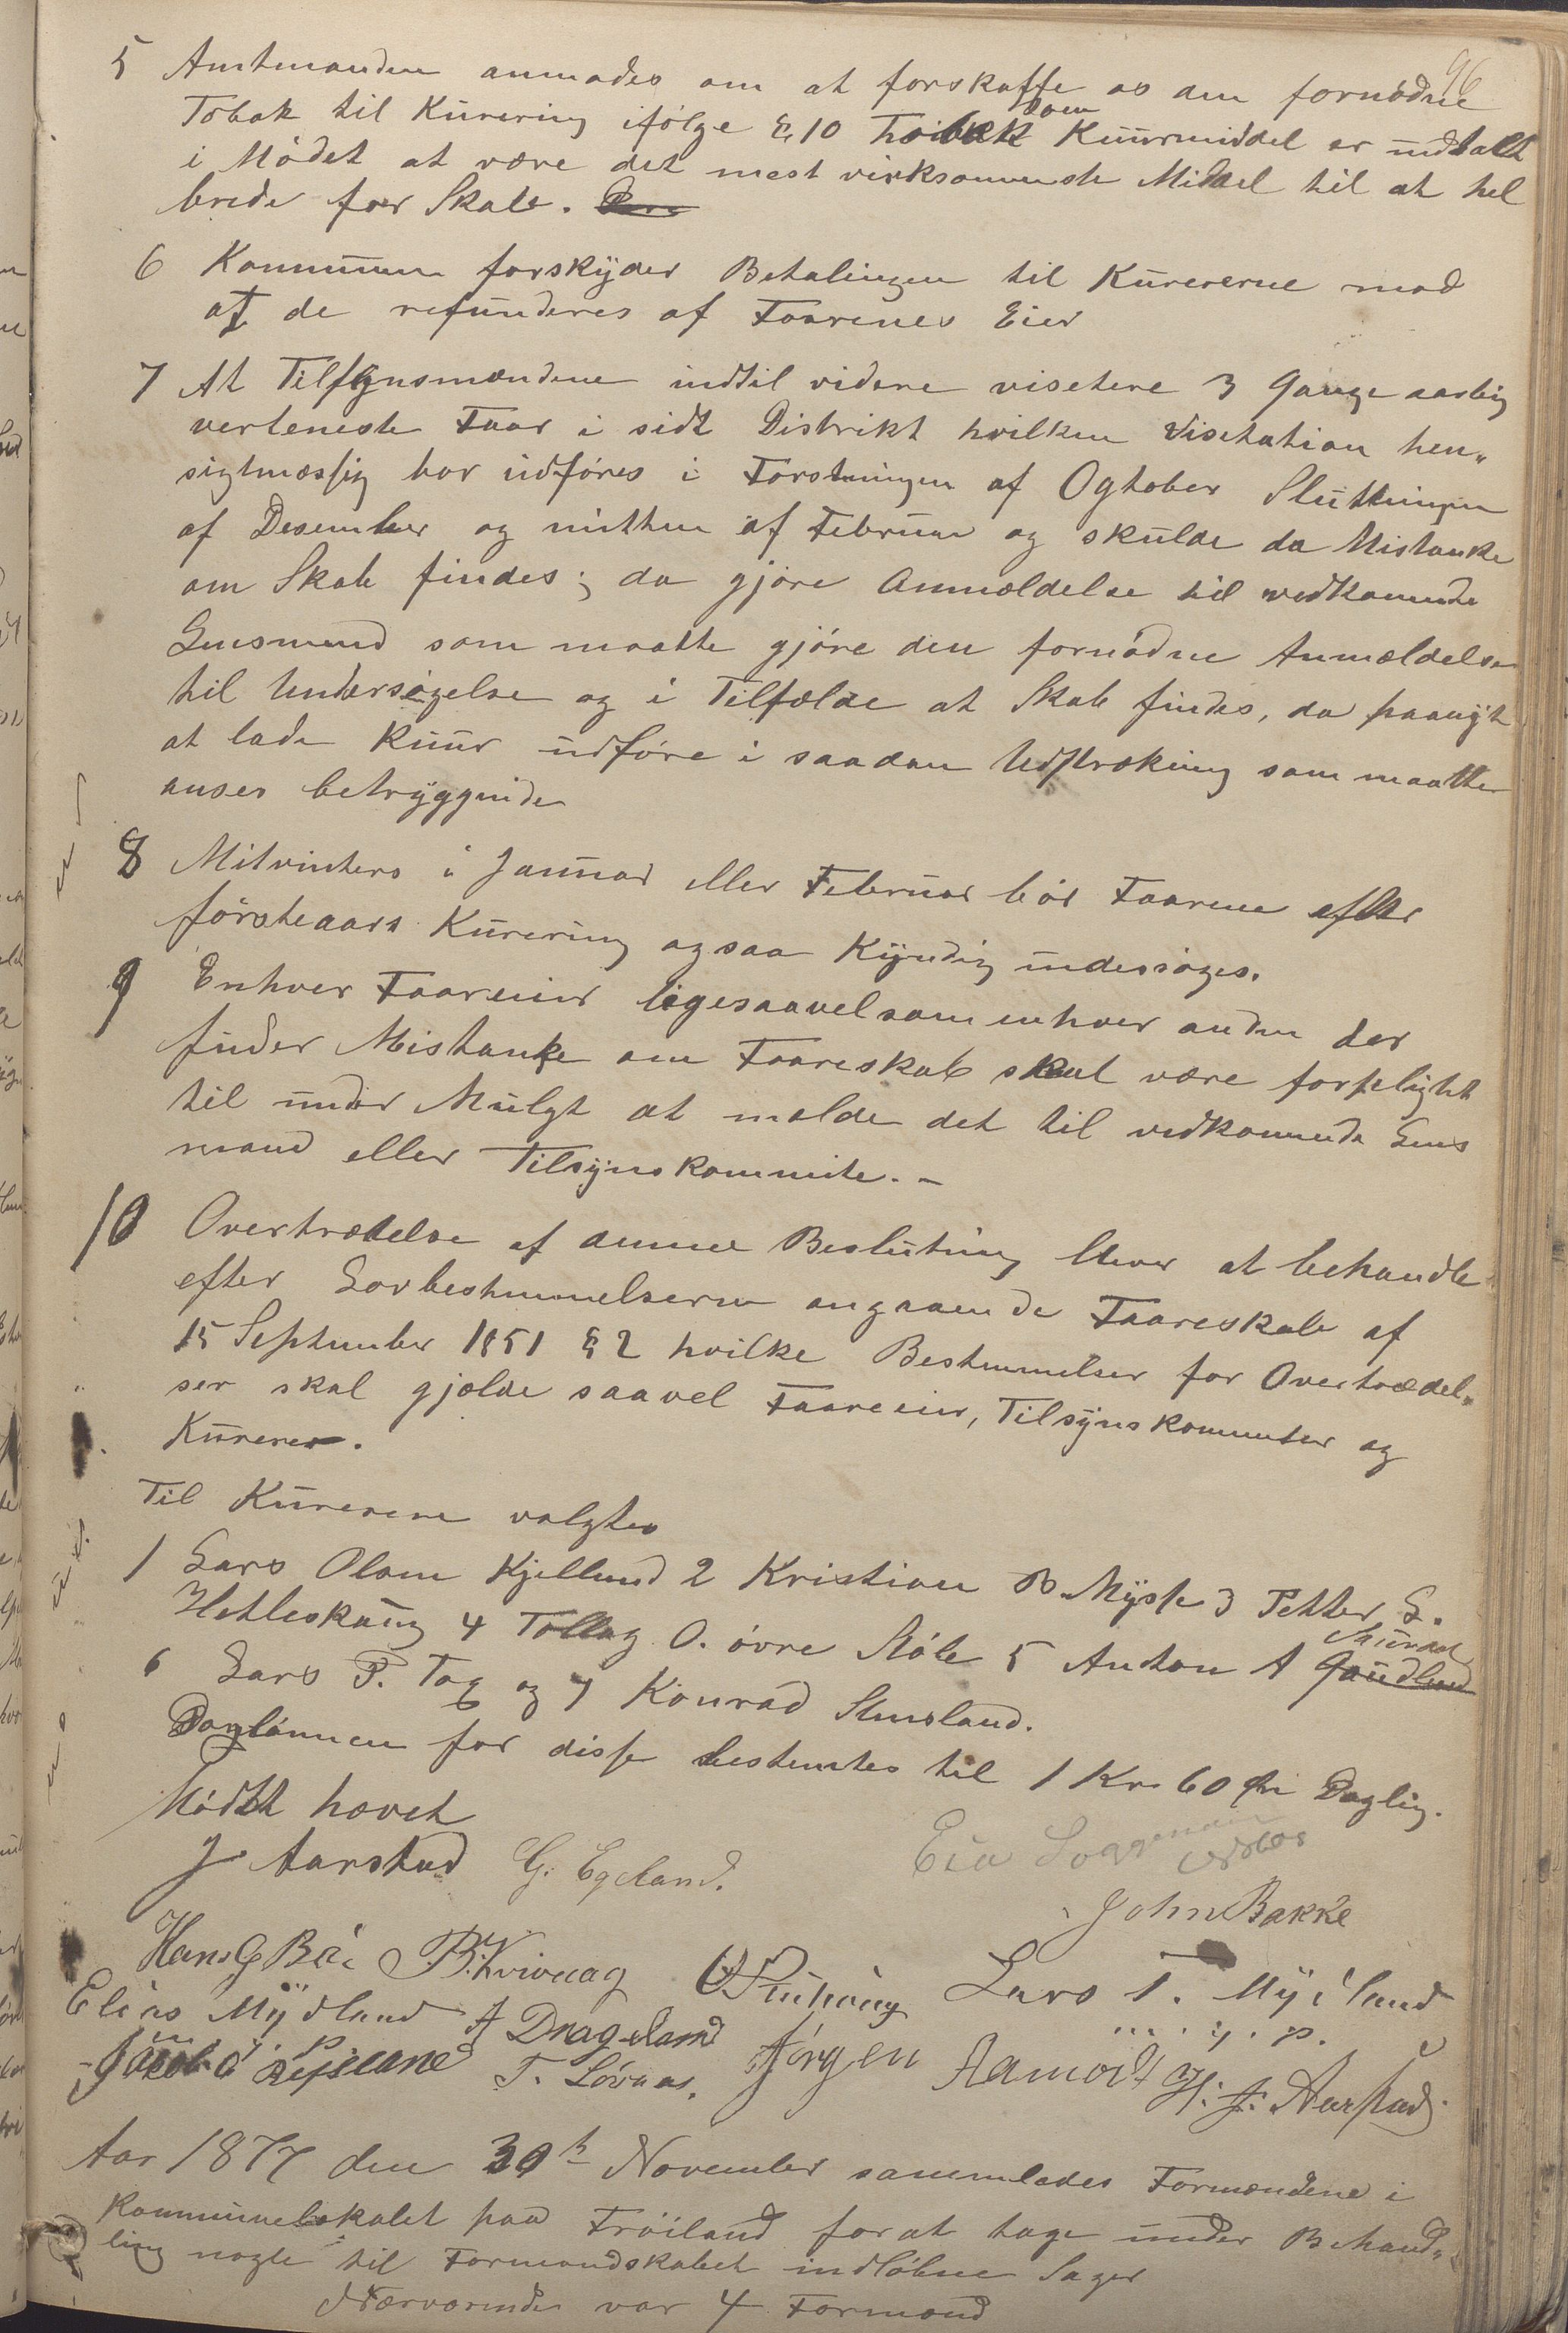 96
5 Amtmanden anmodes om at forskaffe os den fornødne
Tobak til Kurering ifølge § 10 Tobak som Kuurmiddel er udtalt
i Mødet at være det mest virksommeste Middel til at hel
brede for Skab.
6 Kommunen forskyder Betalingen til Kurererne mod
at de refunderes af Faarenes Eier
7 At Tilsynsmændene indtil videre visetere 3 Gange aarlig
verteneste Faar i sidt Distrikt hvilken Visitation hen„
sigtmæssig bor udføres i Førstningen af Ogtober Slutningen
af Desember og mitten af Februar og skulde da Mistanke
om Skab findes; da gjøre Anmældelse til vedkomende
Lensmand som maatte gjøre den fornødne Anmældelse
til Undersøgelse og i Tilfælde at Skab findes, da paanyt
at lade Kuur udføre i saadan Udstrækning som maatte
anses betryggende
8 Mitvinters i Januar eller Februar bør Faarene efter
førsteaars Kurering ogsaa Kyndig undersøges.
9 Enhver Faareeier ligesaavel som enhver anden der
finder Mistanke om Faareskab skal være forpligtet
til under Mulgt at melde det til vedkommende Lens
mand eller Tilsynskommite. -
10 Overtrædelse af denne Beslutning bliver at behandle
efter Lovbestemmelserne angaaende Faareskab af
15 September 1851 § 2 hvilke Bestemmelser for Overtrædel„
ser skal gjælde saavel Faareeier, Tilsynskommiteer og
Kurerer.
Til Kurerere valgtes
1 Lars Olsen Kjelland 2 Kristian B. Mysse 3 Petter L.
Hetleskaug 4 Tollag O. øvre Støle 5 Anton A Gaudland
6 Lars P. Tog og 7 Konrad Stensland.
Daglønnen for disse bestemtes til 1 Kr. 60 Øre Daglig.
Mødet hævet
J Aarstad G. Egeland.
John Bakke
Hans G Bøe B. Kvivaag Lars T. Myiland
Elias Mydland A Drageland
Jakob T. Løvaas. Jørgen Aamodt H. J. Aarstad.
Aar 1877 den 30te November sammlades Formændene i
Kommunelokalet paa Frøiland for at tage under Behand„
ling nogle til Formandskabet indløbne Sager
Nærværende var 4 Formænd